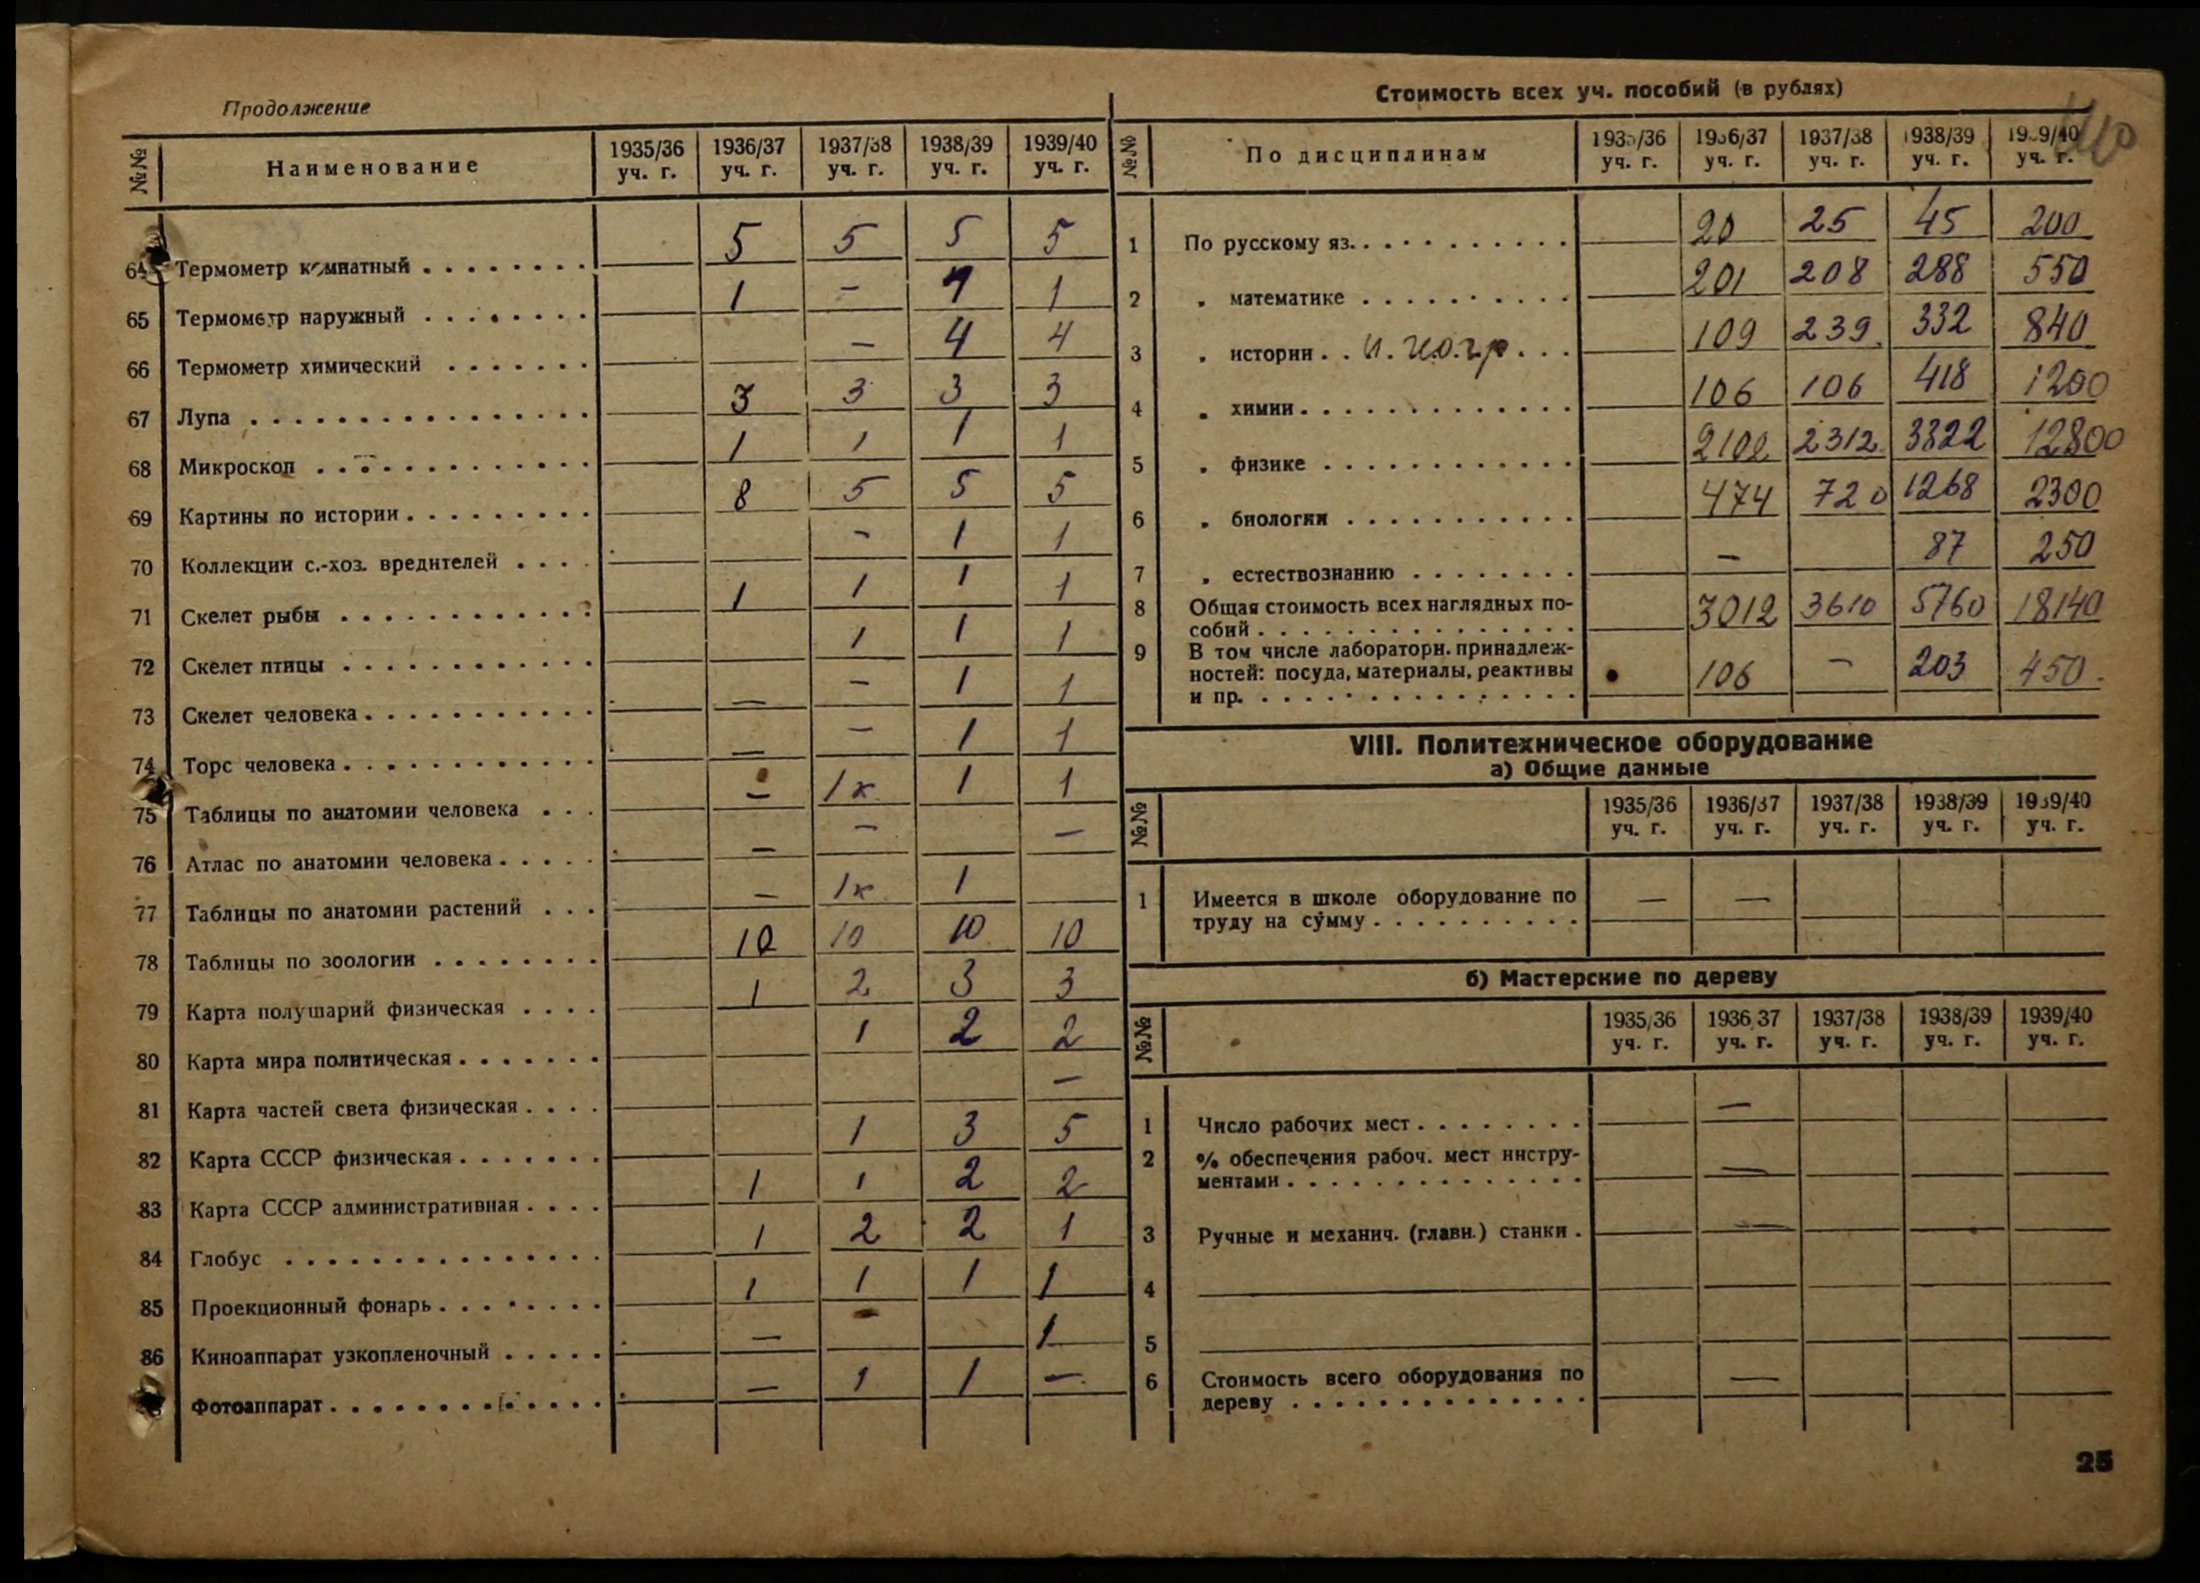 Продолжение
№№ Наименование 1935/36 уч. г. 1936/37 уч. г. 1937/38 уч. г. 1938/39 уч. г. 1939/40 уч. г.
64 Термометр комнатный 5 5 5 5
65 Термометр наружный 1 — 1
66 Термометр химический — 4 4
67 Лупа 3 3 3 3
68 Микроскоп 1 1 1 1
69 Картины по истории 8 5 5 5
70 Коллекции с.-хоз. вредителей — 1 1
71 Скелет рыбы 1 1 1 1
72 Скелет птицы 1 1 1
73 Скелет человека — — 1 1
74 Торс человека — — 1 1
75 Таблицы по анатомии человека — 1к 1 1
76 Атлас по анатомии человека — — —
77 Таблицы по анатомии растений — 1к 1
78 Таблицы по зоологии 10 10 10 10
79 Карта полушарий физическая 1 2 3 3
80 Карта мира политическая 1 2 2
81 Карта частей света физическая —
82 Карта СССР физическая 1 3 5
83 Карта СССР административная 1 1 2 2
84 Глобус 1 2 2 1
85 Проекционный фонарь 1 1 1 1
86 Киноаппарат узкопленочный — - 1
Фотоаппарат — 1 1 —
Стоимость всех уч. пособий (в рублях)
№№ По дисциплинам 1935/36 уч. г. 1936/37 уч. г. 1937/38 уч. г. 1938/39 уч. г. 1939/40 уч. г.
1 По русскому яз. 20 25 45 200
2 „ математике 201 208 288 550
3 „ истории и геогр 109 239 332 840
4 „ химии 106 106 418 1200
5 „ физике 2102 2312 3322 12800
6 „ биологии 474 720 1268 2300
7 „ естествознанию — 87 250
8 Общая стоимость всех наглядных по-
собий 3012 3610 5760 18140
9 В том числе лабораторн. принадлеж-
ностей: посуда, материалы, реактивы
и пр. 106 — 203 450
VIII. Политехническое оборудование
а) Общие данные
№№ 1935/36 уч. г. 1936/37 уч. г. 1937/38 уч. г. 1938/39 уч. г. 1939/40 уч. г.
1 Имеется в школе оборудование по
труду на сумму — —
б) Мастерские по дереву
№№ 1935/36 уч. г. 1936/37 уч. г. 1937/38 уч. г. 1938/39 уч. г. 1939/40 уч. г.
1 Число рабочих мест —
2 % обеспечения рабоч. мест инстру-
ментами —
3 Ручные и механич. (главн.) станки —
4
5
6 Стоимость всего оборудования по
дереву —
25